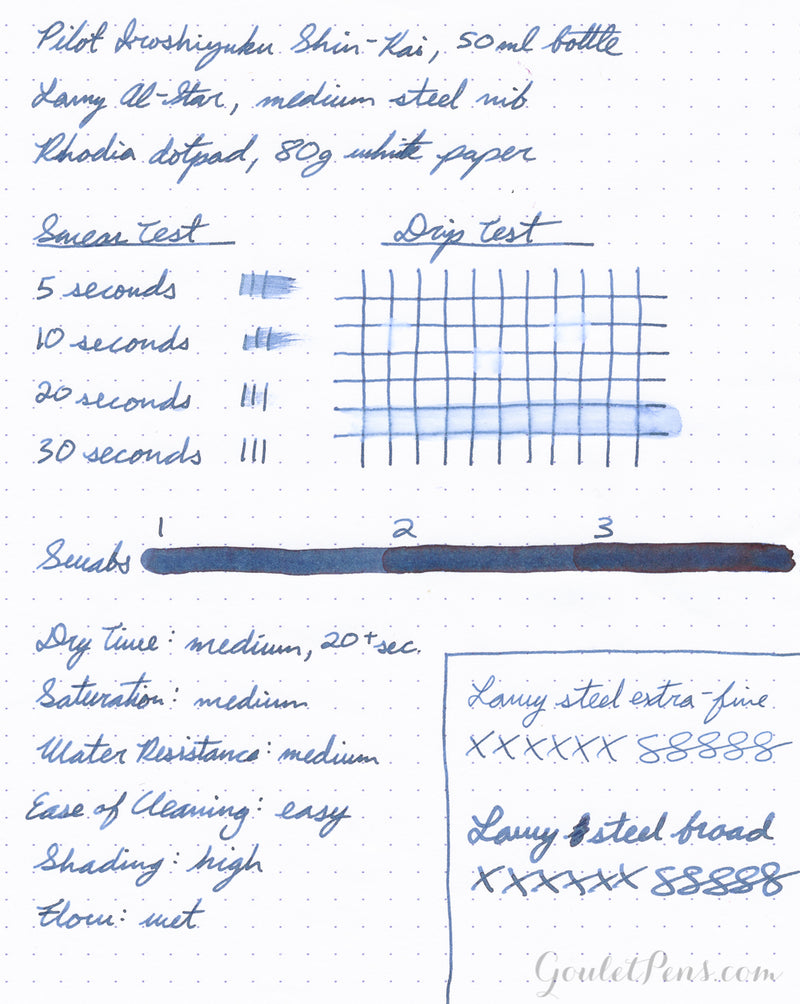 Pilot Iroshizuku Shin-Kai, 50ml bottle
Lamy Al-Star, medium steel nib
Rhodia dotpad, 80g white paper
Smear Test
Drip Test
5 seconds
10 seconds
20 seconds
30 seconds
1 2 3
Swabs
Dry Time: medium, 20+ sec.
Saturation: medium
Water Resistance: medium
Ease of Cleaning: easy
Shading: high
Flow: wet
Lamy steel extra-fine
xxxxxx 88888
Lamy steel broad
xxxxxx 88888
GouletPens.com